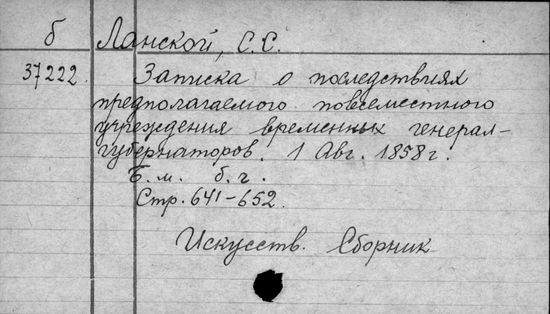 б Ланской, С.С.
37222. Записка о последствиях
предполагаемого повсеместного
учреждения временных генерал-
губернаторов. 1 Авг. 1858 г.
Б.м. б.г.
Стр. 641-652.
Искусств. Сборник